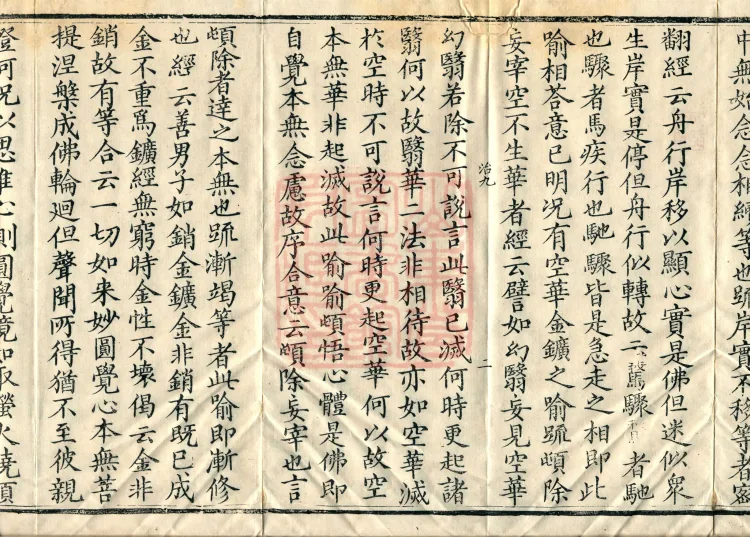 中無念念相續等也䟽岸實不移等者密
翻經云舟行岸移以顯心實是佛但迷似衆
生岸實是停但舟行似轉故云驟者馳
也驟者馬疾行也馳驟皆是急走之相即此
喻相荅意已明况有空華金鑛之喻䟽頓除
妄宰空不生華者經云譬如幻翳妄見空華
治九 二
幻翳若除不可說言此翳已滅何時更起諸
翳何以故翳華二法非相待故亦如空華滅
於空時不可說言何時更起空華何以故空
本無華非起滅故此喻喻頓悟心體是佛即
自覺本無念慮故序合意云頓除妄宰也言
頓除者達之本無也䟽漸竭等者此喻即漸修
也經云善男子如銷金鑛金非銷有既已成
金不重爲鑛經無窮時金性不壞偈云金非
銷故有等合云一切如来妙圓覺心本無菩
提涅槃成佛輪廻但聲聞所得猶不至彼親
證何况以思惟心測圓覺境如取螢火燒須